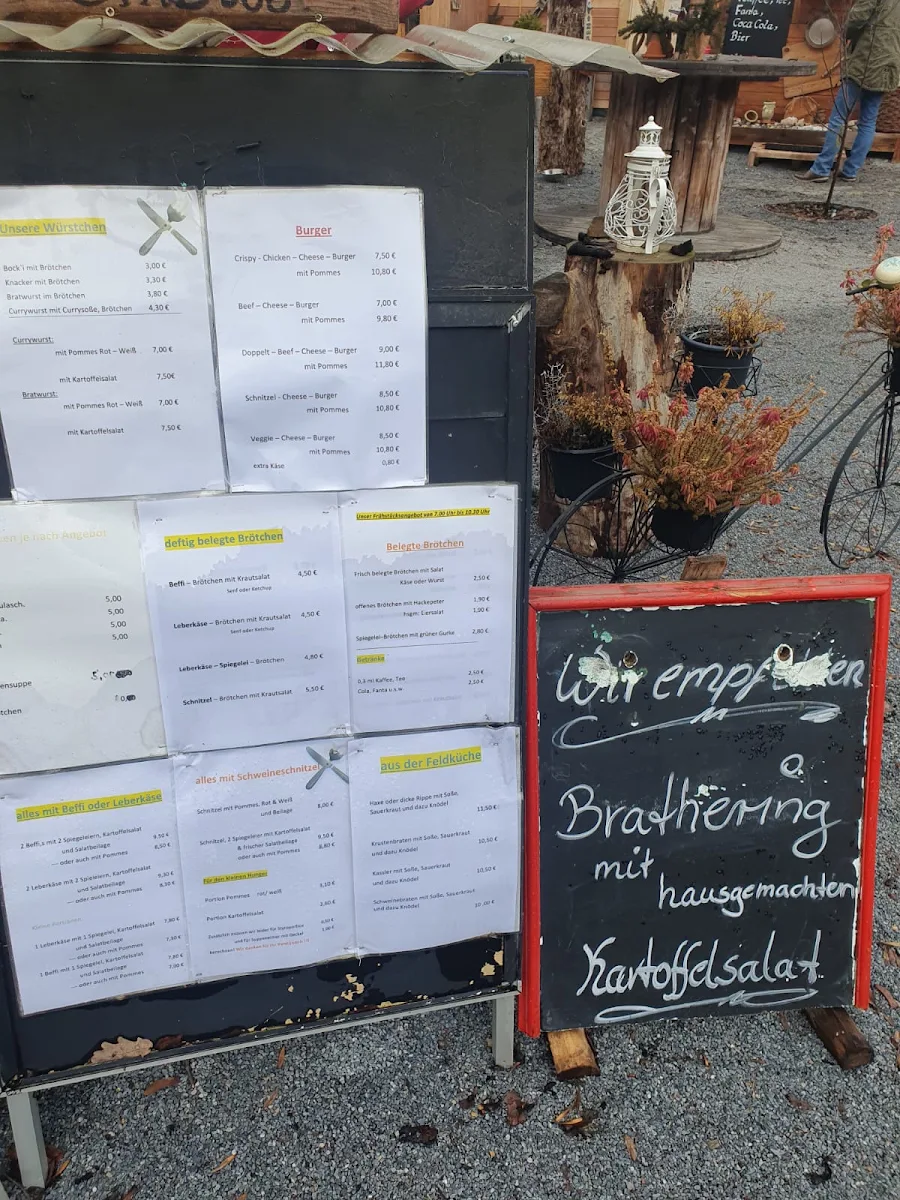 Fanta,
Coca Cola,
Bier
Unsere Würstchen
Bock'l mit Brötchen 3,00 €
Knacker mit Brötchen 3,30 €
Bratwurst im Brötchen 3,80 €
Currywurst mit Currysoße, Brötchen 4,30 €
Currywurst:
mit Pommes Rot – Weiß 7,00 €
mit Kartoffelsalat 7,50€
Bratwurst:
mit Pommes Rot – Weiß 7,00 €
mit Kartoffelsalat 7,50 €
Burger
Crispy - Chicken – Cheese – Burger 7,50 €
mit Pommes 10,80 €
Beef – Cheese – Burger 7,00 €
mit Pommes 9,80 €
Doppelt – Beef – Cheese – Burger 9,00 €
mit Pommes 11,80 €
Schnitzel - Cheese – Burger 8,50 €
mit Pommes 10,80 €
Veggie – Cheese – Burger 8,50 €
mit Pommes 10,80 €
extra Käse 0,80 €
en je nach Angebot
ulasch. 5,00
a. 5,00
5,00
5,00
ensuppe
tchen
deftig belegte Brötchen
Beffi – Brötchen mit Krautsalat 4,50 €
Senf oder Ketchup
Leberkäse – Brötchen mit Krautsalat 4,50 €
Senf oder Ketchup
Leberkäse – Spiegelei – Brötchen 4,80 €
Schnitzel – Brötchen mit Krautsalat 5,50 €
Unser Frühstücksangebot von 7.00 Uhr bis 10.30 Uhr
Belegte Brötchen
Frisch belegte Brötchen mit Salat
Käse oder Wurst 2,50 €
offenes Brötchen mit Hackepeter 1,90 €
hsgm. Eiersalat 1,90 €
Spiegelei-Brötchen mit grüner Gurke 2,80 €
Getränke
0,3 ml Kaffee, Tee 2,50 €
Cola, Fanta u.s.w. 2,50 €
alles mit Beffi oder Leberkäse
2 Beffi,s mit 2 Spiegeleiern, Kartoffelsalat
und Salatbeilage 9,50 €
--- oder auch mit Pommes 8,50 €
2 Leberkäse mit 2 Spieleiern, Kartoffelsalat
und Salatbeilage 9,30 €
--- oder auch mit Pommes 8,30 €
1 Leberkäse mit 1 Spiegelei, Kartoffelsalat 7,80 €
und Salatbeilage
--- oder auch mit Pommes
1 Beffi mit 1 Spiegelei, Kartoffelsalat
und Salatbeilage
--- oder auch mit Pommes
alles mit Schweineschnitzel
Schnitzel mit Pommes, Rot & Weiß
und Beilage 8,00 €
Schnitzel, 2 Spiegeleier mit Kartoffelsalat 9,50 €
& frischer Salatbeilage
oder auch mit Pommes 8,80 €
Für den kleinen Hunger
Portion Pommes rot/ weiß
Portion Kartoffelsalat
aus der Feldküche
Haxe oder dicke Rippe mit Soße,
Sauerkraut und dazu Knödel 11,50 €
Krustenbraten mit Soße, Sauerkraut
und dazu Knödel 10,50 €
Kassler mit Soße, Sauerkraut
und dazu Knödel 10,50 €
Schweinebraten mit Soße, Sauerkraut
und dazu Knödel
Wir empf en
Brathering
mit
hausgemachten
Kartoffelsalat